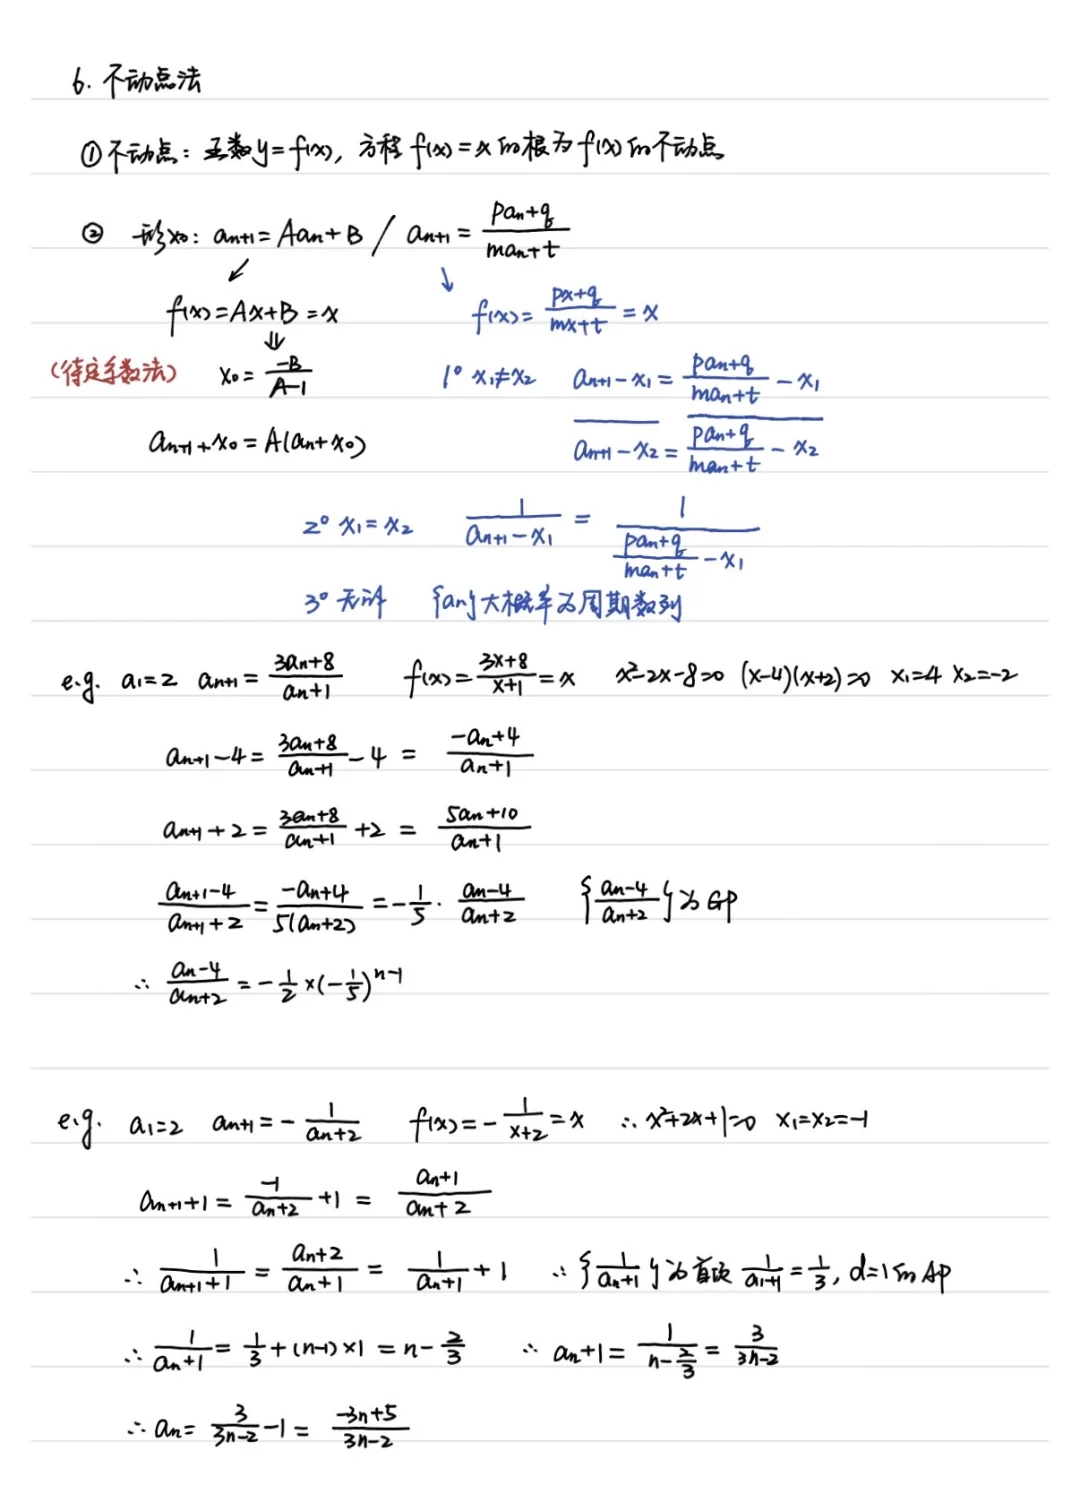 6. 不动点法
① 不动点：函数y=f(x)，方程f(x)=x的根为f(x)的不动点
② 形如：aₙ₊₁=Aaₙ+B / aₙ₊₁=(paₙ+q)/(maₙ+t)
↙ ↓
f(x)=Ax+B=x f(x)=(px+q)/(mx+t)=x
⇓
(待定系数法) x₀=(-B)/(A-1) 1° x₁≠x₂ (aₙ₊₁-x₁)/(aₙ₊₁-x₂)=((paₙ+q)/(maₙ+t)-x₁)/((paₙ+q)/(maₙ+t)-x₂)
aₙ₊₁+x₀=A(aₙ+x₀)
2° x₁=x₂ 1/(aₙ₊₁-x₁)=1/((paₙ+q)/(maₙ+t)-x₁)
3° 无解 {aₙ}大概率为周期数列
e.g. a₁=2 aₙ₊₁=(3aₙ+8)/(aₙ+1) f(x)=(3x+8)/(x+1)=x x²-2x-8=0 (x-4)(x+2)=0 x₁=4 x₂=-2
aₙ₊₁-4=(3aₙ+8)/(aₙ+1)-4=(-aₙ+4)/(aₙ+1)
aₙ₊₁+2=(3aₙ+8)/(aₙ+1)+2=(5aₙ+10)/(aₙ+1)
(aₙ₊₁-4)/(aₙ₊₁+2)=(-aₙ+4)/(5(aₙ+2))=-1/5·(aₙ-4)/(aₙ+2) {(aₙ-4)/(aₙ+2)}为GP
∴ (aₙ-4)/(aₙ+2)=-1/2×(-1/5)ⁿ⁻¹
e.g. a₁=2 aₙ₊₁=-1/(aₙ+2) f(x)=-1/(x+2)=x ∴x²+2x+1=0 x₁=x₂=-1
aₙ₊₁+1=-1/(aₙ+2)+1=(aₙ+1)/(aₙ+2)
∴ 1/(aₙ₊₁+1)=(aₙ+2)/(aₙ+1)=1/(aₙ+1)+1 ∴{1/(aₙ+1)}为首项1/(a₁+1)=1/3, d=1的AP
∴ 1/(aₙ+1)=1/3+(n-1)×1=n-2/3 ∴ aₙ+1=1/(n-2/3)=3/(3n-2)
∴ aₙ=3/(3n-2)-1=(-3n+5)/(3n-2)